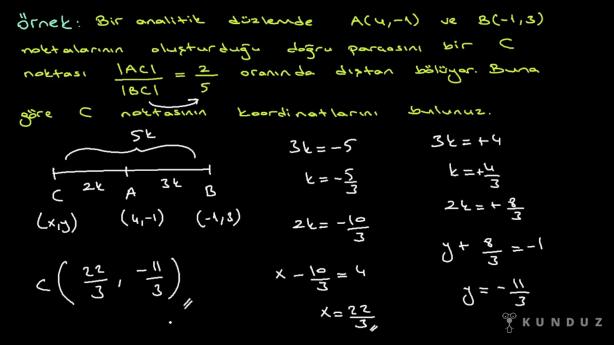 Örnek: Bir analitik düzlemde A(4,-1) ve B(-1,3)
noktalarının oluşturduğu doğru parçasını bir C
noktası |AC|/|BC| = 2/5 oranında dıştan bölüyor. Buna
göre C noktasının koordinatlarını bulunuz.
5k
C 2k A 3k B
(x,y) (4,-1) (-1,3)
C(22/3, -11/3)
3k = -5
k = -5/3
2k = -10/3
x - 10/3 = 4
x = 22/3
3k = +4
k = +4/3
2k = +8/3
y + 8/3 = -1
y = -11/3
KUNDUZ